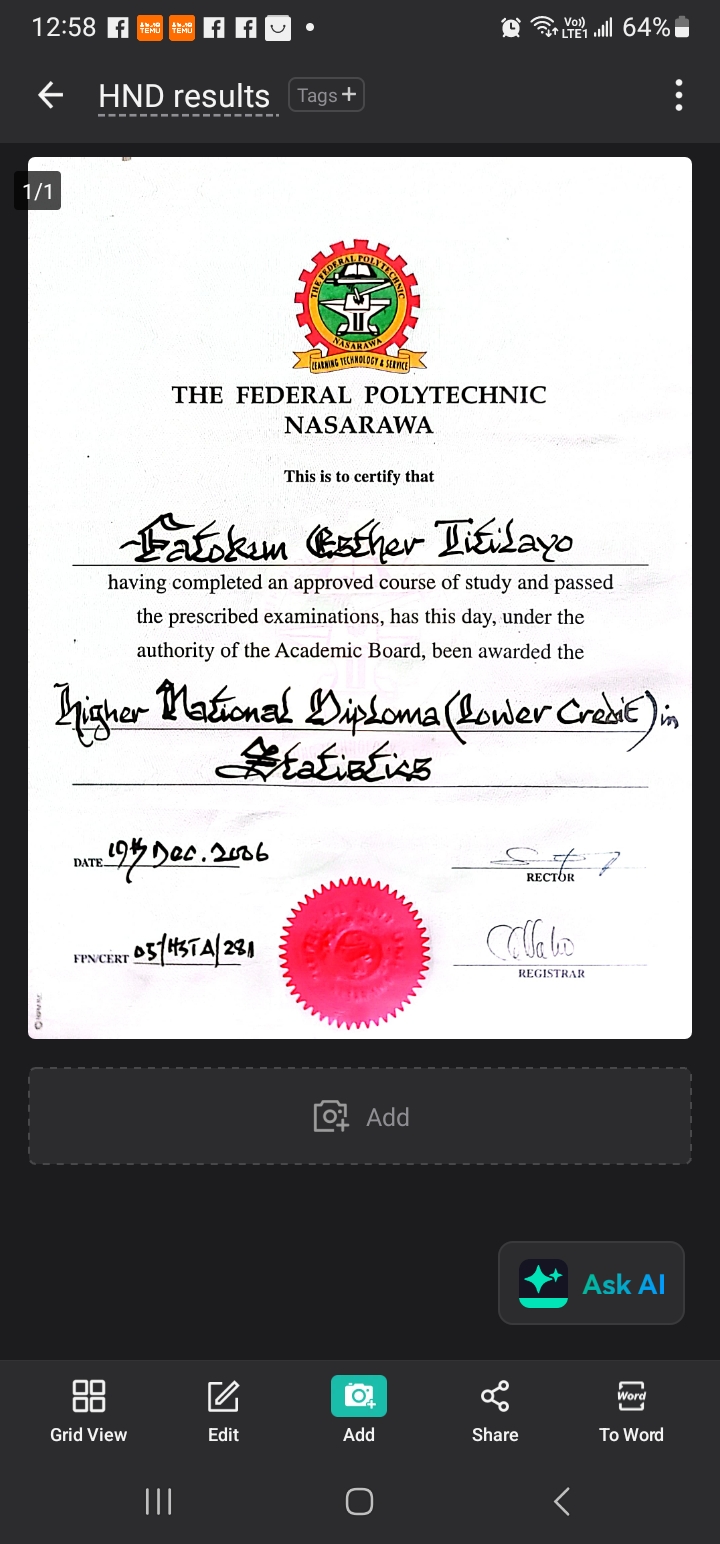 12:58
Vo))
LTE1
64%
HND results
Tags+
1/1
THE FEDERAL POLYTECHNIC
NASARAWA
LEARNING TECHNOLOGY & SERVICE
THE FEDERAL POLYTECHNIC
NASARAWA
This is to certify that
Fatokun Esther Titilayo
having completed an approved course of study and passed
the prescribed examinations, has this day, under the
authority of the Academic Board, been awarded the
Higher National Diploma (Lower Credit) in
Statistics
DATE 19th Dec. 2006
RECTOR
FPN/CERT 05/HSTA/281
REGISTRAR
Add
Ask AI
Grid View
Edit
Add
Share
Word
To Word